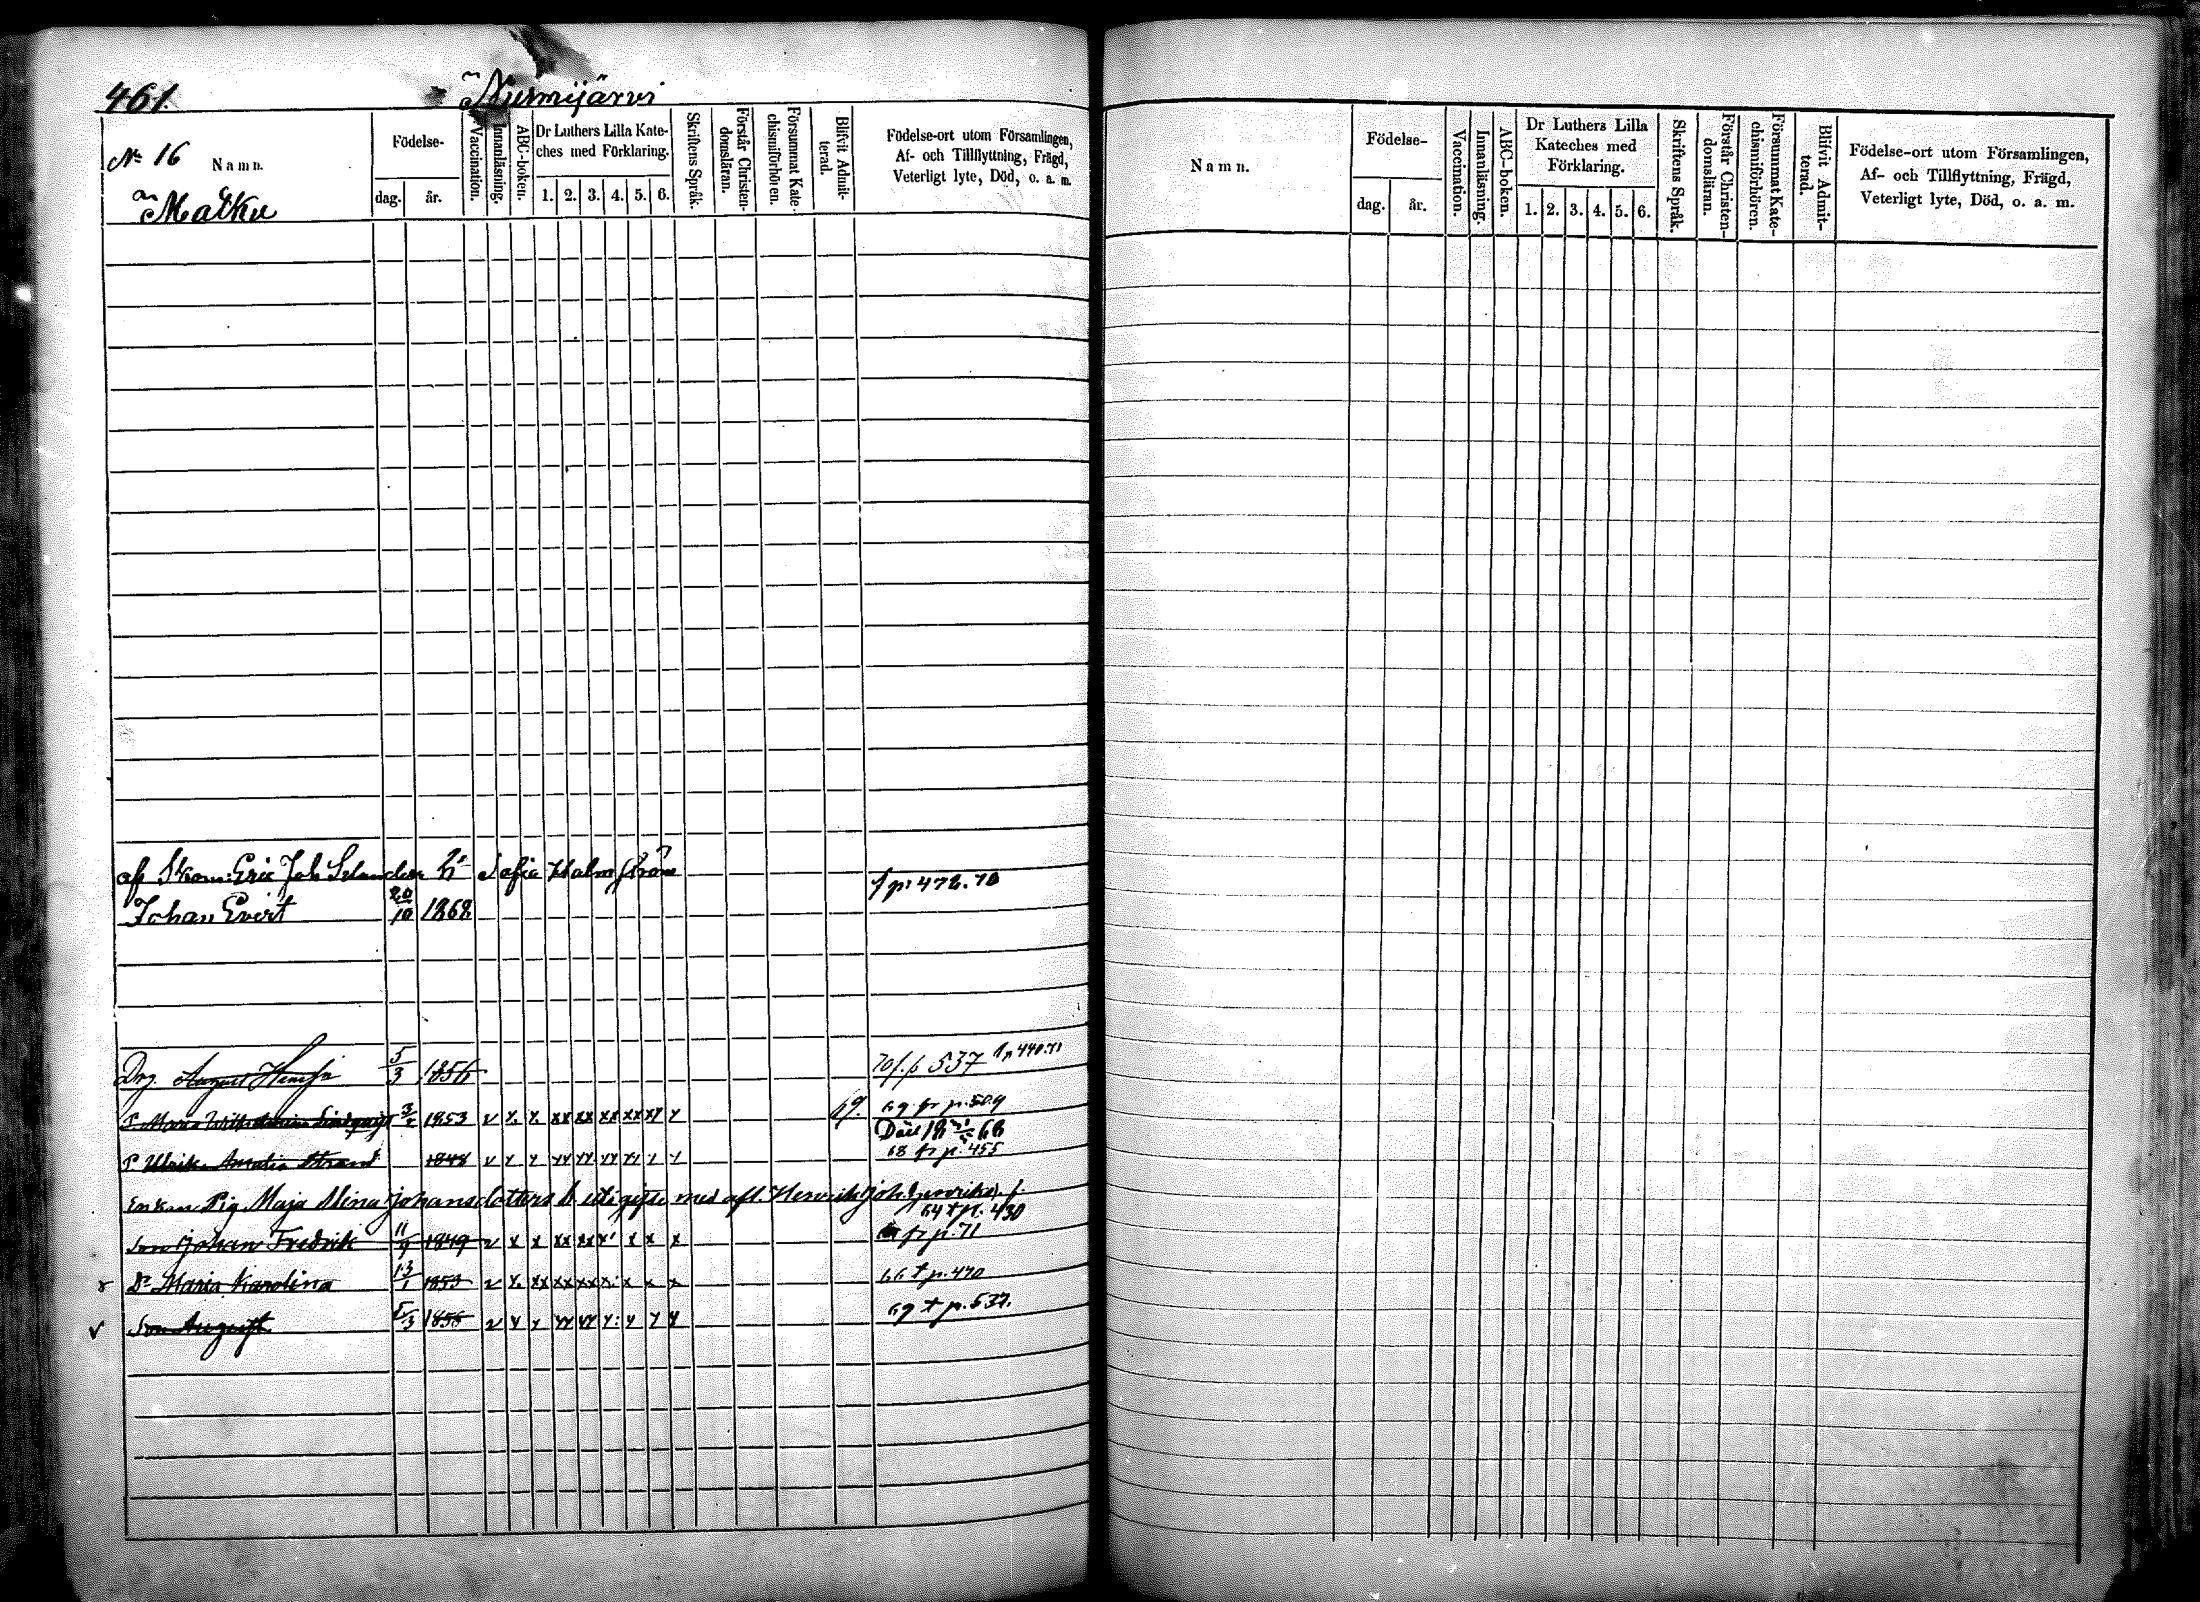 461.
Nurmijärvi
№ 16
Namn.
Födelse-
dag.
år.
Vaccination.
Innanläsning.
ABC-boken.
Dr Luthers Lilla Kate-
ches med Förklaring.
1. 2. 3. 4. 5. 6.
Skriftens Språk.
Förstår Christen-
domsläran.
Försummat Kate-
chismiförhören.
Blifvit Admit-
terad.
Födelse-ort utom Församlingen,
Af- och Tillflyttning, Frägd,
Veterligt lyte, Död, o. a. m.
Matku
af Skom: Eric Joh Selander Sofia Holmström
f p: 472. 70
Johan Evert 20/10 1868
Drg August 5/3 1856 70 f. p 537 f p 440. 71
P. Maria Wilhelmina Lindqvist 3/2 1853 v x. x. xx xx xx xx xx x 69. 69 fr p. 509
P Ulrika Amalia Strand 1848 v x x xx xx xx xx x x 68 fr p. 455
Enkan Pig Maja Stina Johansdotters b med afl. Henrik Joh. Henriks. f.
64 + p. 430
Son Johan Fredrik 11/9 1849 v x x xx xx x x x x fr p. 71
Dr Maria Karolina 13/1 1853 v x. xx xx xx x. x x x 66 + p. 470
v Son August 5/3 1856 v x x xx xx x: x x x 69 + p. 537.
Namn.
Födelse-
dag.
år.
Vaccination.
Innanläsning.
ABC-boken.
Dr Luthers Lilla
Kateches med
Förklaring.
1. 2. 3. 4. 5. 6.
Skriftens Språk.
Förstår Christen-
domsläran.
Försummat Kate-
chismiförhören.
Blifvit Admit-
terad.
Födelse-ort utom Församlingen,
Af- och Tillflyttning, Frägd,
Veterligt lyte, Död, o. a. m.